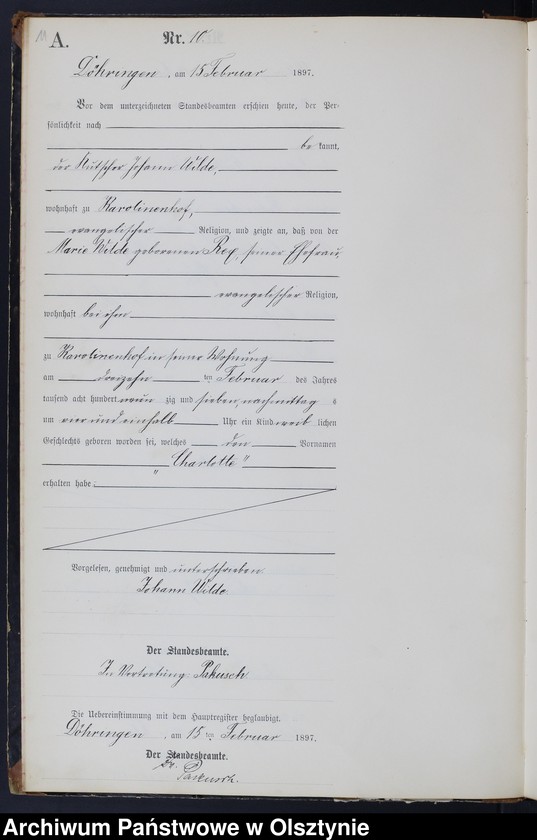 A.
Nr. 10.
Döhringen, am 15 Februar 1897.
Vor dem unterzeichneten Standesbeamten erschien heute, der Per-
sönlichkeit nach
be kannt,
der Kutscher Johann Wilde,
wohnhaft zu Karolinenhof,
evangelischer Religion, und zeigte an, daß von der
Marie Wilde geborenen Rex, seiner Ehefrau,
evangelischer Religion,
wohnhaft bei ihm
zu Karolinenhof in seiner Wohnung
am dreizehn ten Februar des Jahres
tausend acht hundert neun zig und sieben, nachmittag s
um vier und einhalb Uhr ein Kind weib lichen
Geschlechts geboren worden sei, welches den Vornamen
„Charlotte"
erhalten habe.
Vorgelesen, genehmigt und unterschrieben
Johann Wilde
Der Standesbeamte.
In Vertretung Pakusch
Die Uebereinstimmung mit dem Hauptregister beglaubigt.
Döhringen, am 15 ten Februar 1897.
Der Standesbeamte.
Pakusch.
Archiwum Państwowe w Olsztynie